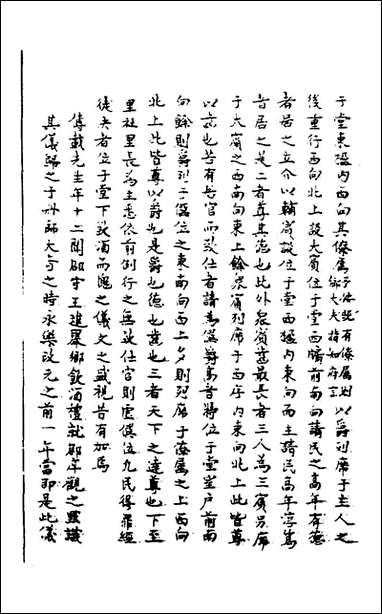 于堂東楹内西向其僚屬予依恐有僚屬則鄉大夫指知府言以爵列席于主人之
後重行西向北上設大賓位于堂西牖前南向請民之高年有德
者居之立介以輔賓設位于堂西楹内東向而主請民高年淳篤
者居之是二者尊其德也此外眾賓齒最長者三人為三賓另席
于大賓之西南向東上餘眾賓列席于西序内東向北上此皆尊
以齒也若有居官而致仕者請為僎爵高者特位于堂室戸前南
向餘則爵列于僎位之東南向西上多則列席于僚屬之上西向
北上此皆尊以爵也是爵也德也齒也三者天下之達尊也下至
里社里長為主悉依前例行之無致仕官則虛僎位凡民得罪經
徒夫者位于堂下設酒而愧之儀文之盛視昔有加焉
傳載先生年十二聞郡守王進舉鄉飲酒禮就郡庠觀之畧識
其儀歸之于外師大奇之時永樂改元之前一年當即是此儀